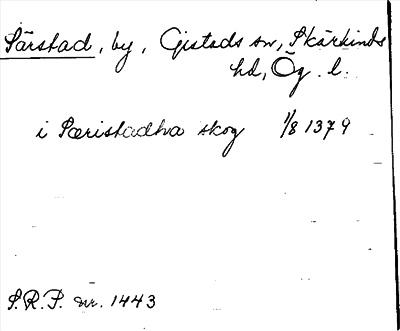 Särstad, by, Gistads sn, Skärkinds
hd, Ög. l.
i Særistadha skog 1/8 1379
S.R.P. nr. 1443